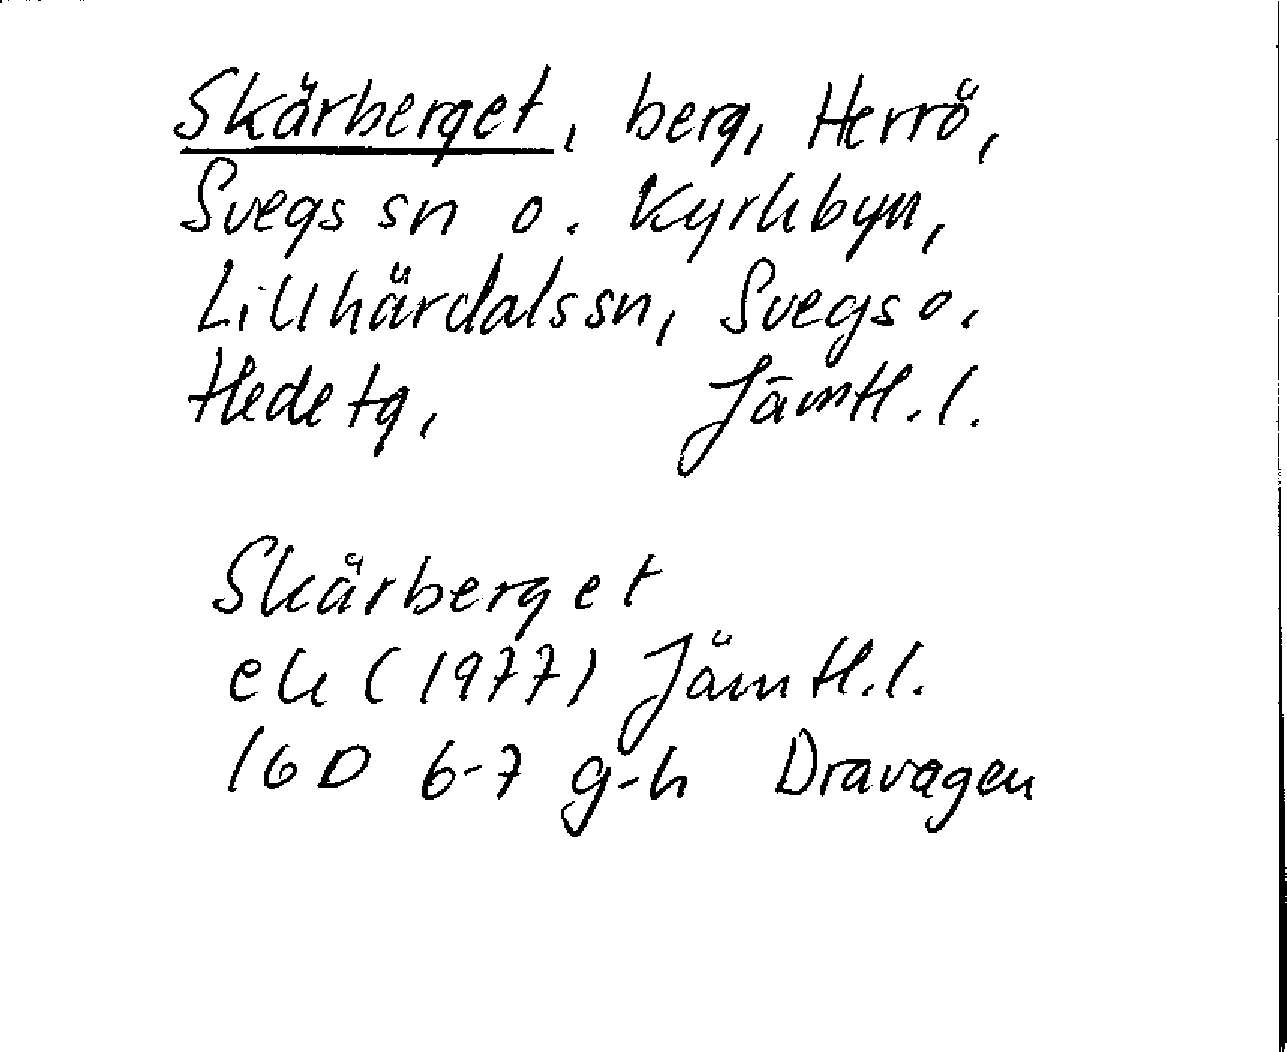 Skärberget, berg, Herrö,
Svegs sn o. Kyrkbyn,
Lillhärdals sn, Svegs o.
Hede tg, Jämtl. l.
Skärberget
ek (1977) Jämtl. l.
16 D 6-7 g-h Dravagen